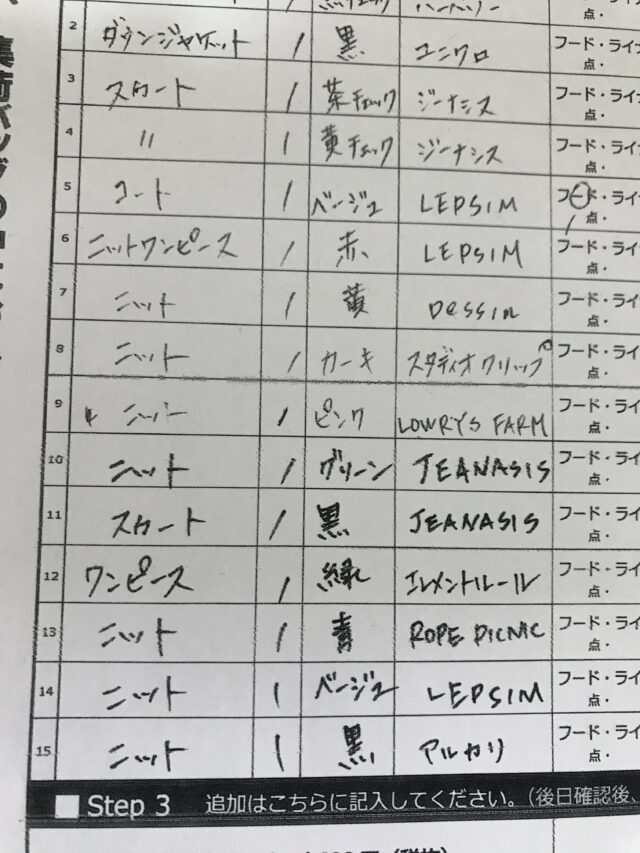 2 ダウンジャケット 1 黒 ユニクロ フード・ライナ 点・
3 スカート 1 茶チェック ジーナシス フード・ライ 点・
4 〃 1 黄チェック ジーナシス フード・ライ 点・
5 コート 1 ベージュ LEPSIM フード・ライ 1点・
6 ニットワンピース 1 赤 LEPSIM フード・ライ 点・
7 ニット 1 黄 Dessin フード・ライ 点・
8 ニット 1 カーキ スタディオクリップ フード・ライ 点・
9 ニバー 1 ピンク LOWRYS FARM フード・ライ 点・
10 ニット 1 グリーン JEANASIS フード・ライ 点・
11 スカート 1 黒 JEANASIS フード・ライ 点・
12 ワンピース 1 緑 エレメントルール フード・ライ 点・
13 ニット 1 青 ROPE PICNIC フード・ライ 点・
14 ニット 1 ベージュ LEPSIM フード・ライ 点・
15 ニット 1 黒 アルカリ フード・ライ 点・
Step 3 追加はこちらに記入してください。（後日確認後、